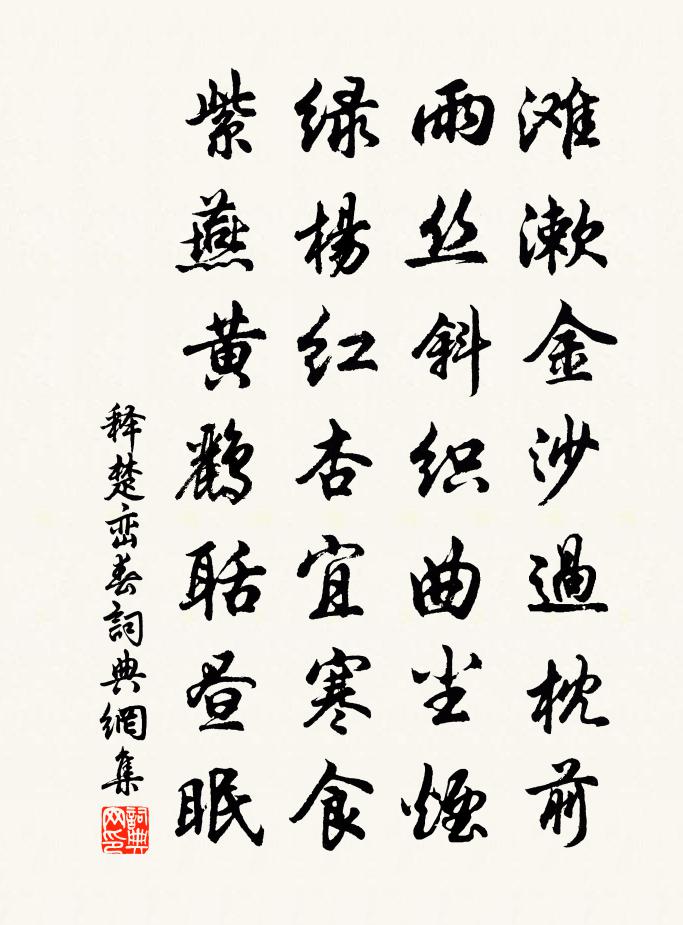 滩漱金沙過枕前
雨丝斜织曲尘煙
绿楊红杏宜寒食
紫燕黄鹂聒昼眠
释楚峦春詞典網集
詞典网印